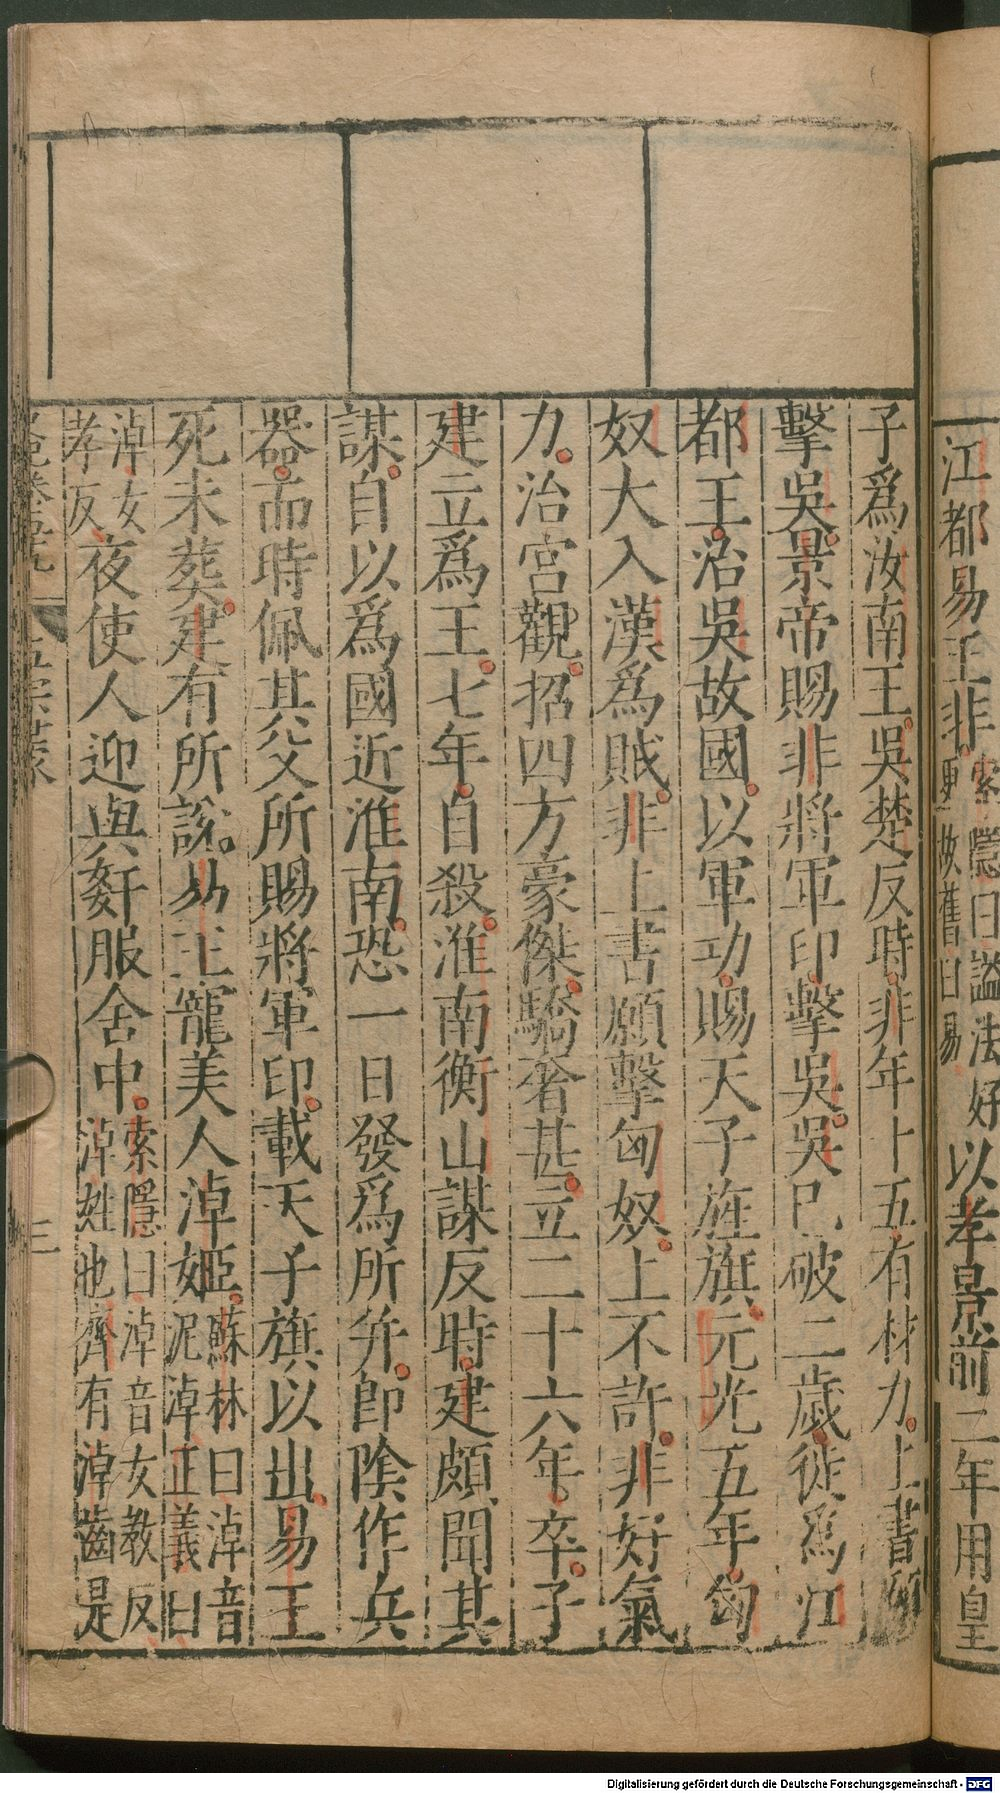 江都易王非索隱曰謚法好更故舊曰易以孝景前二年用皇
子爲汝南王吳楚反時非年十五有材力上書願
擊吳景帝賜非將軍印擊吳吳已破二歲徙爲江
都王治吳故國以軍功賜天子旌旗元光五年匈
奴大入漢爲賊非上書願擊匈奴上不許非好氣
力治宮觀招四方豪傑驕奢甚立二十六年卒子
建立爲王七年自殺淮南衡山謀反時建頗聞其
謀自以爲國近淮南恐一日發爲所并即陰作兵
器而時佩其父所賜將軍印載天子旗以出易王
死未葬建有所說易王寵美人淖姬蘇林曰淖音泥淖正義曰
淖女孝反夜使人迎與姧服舍中索隱曰淖音女教反淖姓也齊有淖齒是
三
Digitalisierung gefördert durch die Deutsche Forschungsgemeinschaft - DFG